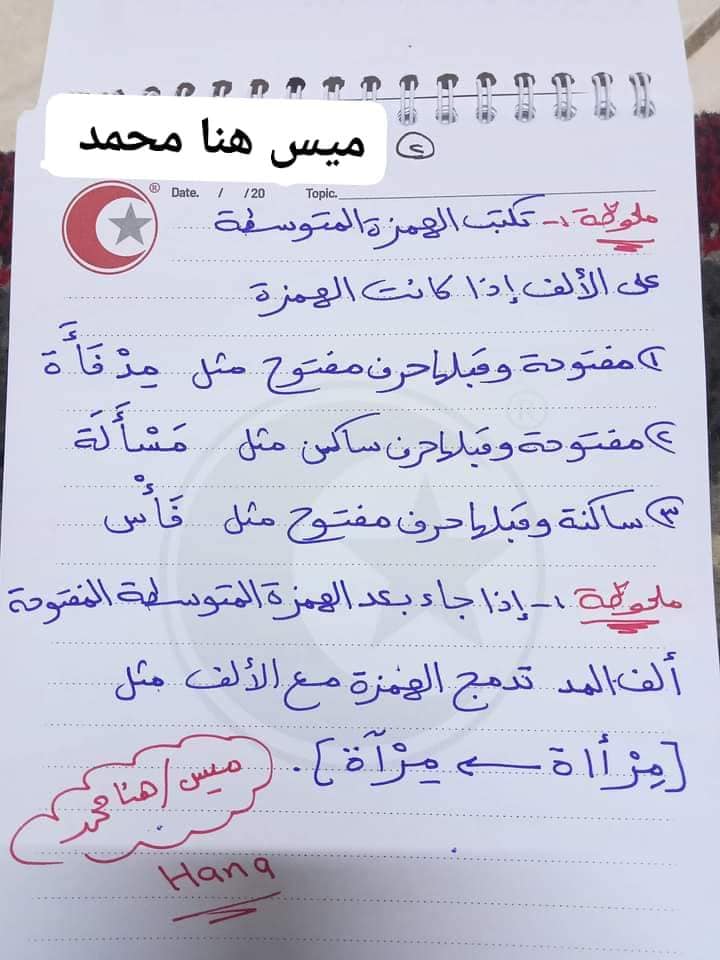 ميس هنا محمد
٢
® Date. / /20 Topic.
ملحوظة ١- تكتب الهمزة المتوسطة
على الألف إذا كانت الهمزة
١) مفتوحة وقبلها حرف مفتوح مثل مِدْفَأَة
٢) مفتوحة وقبلها حرف ساكن مثل مَسْأَلَة
٣) ساكنة وقبلها حرف مفتوح مثل فَأْس
ملحوظة ١- إذا جاء بعد الهمزة المتوسطة المفتوحة
ألف المد تدمج الهمزة مع الألف مثل
[مِرْأاة ← مِرْآة].
ميس/هنا محمد
Hana